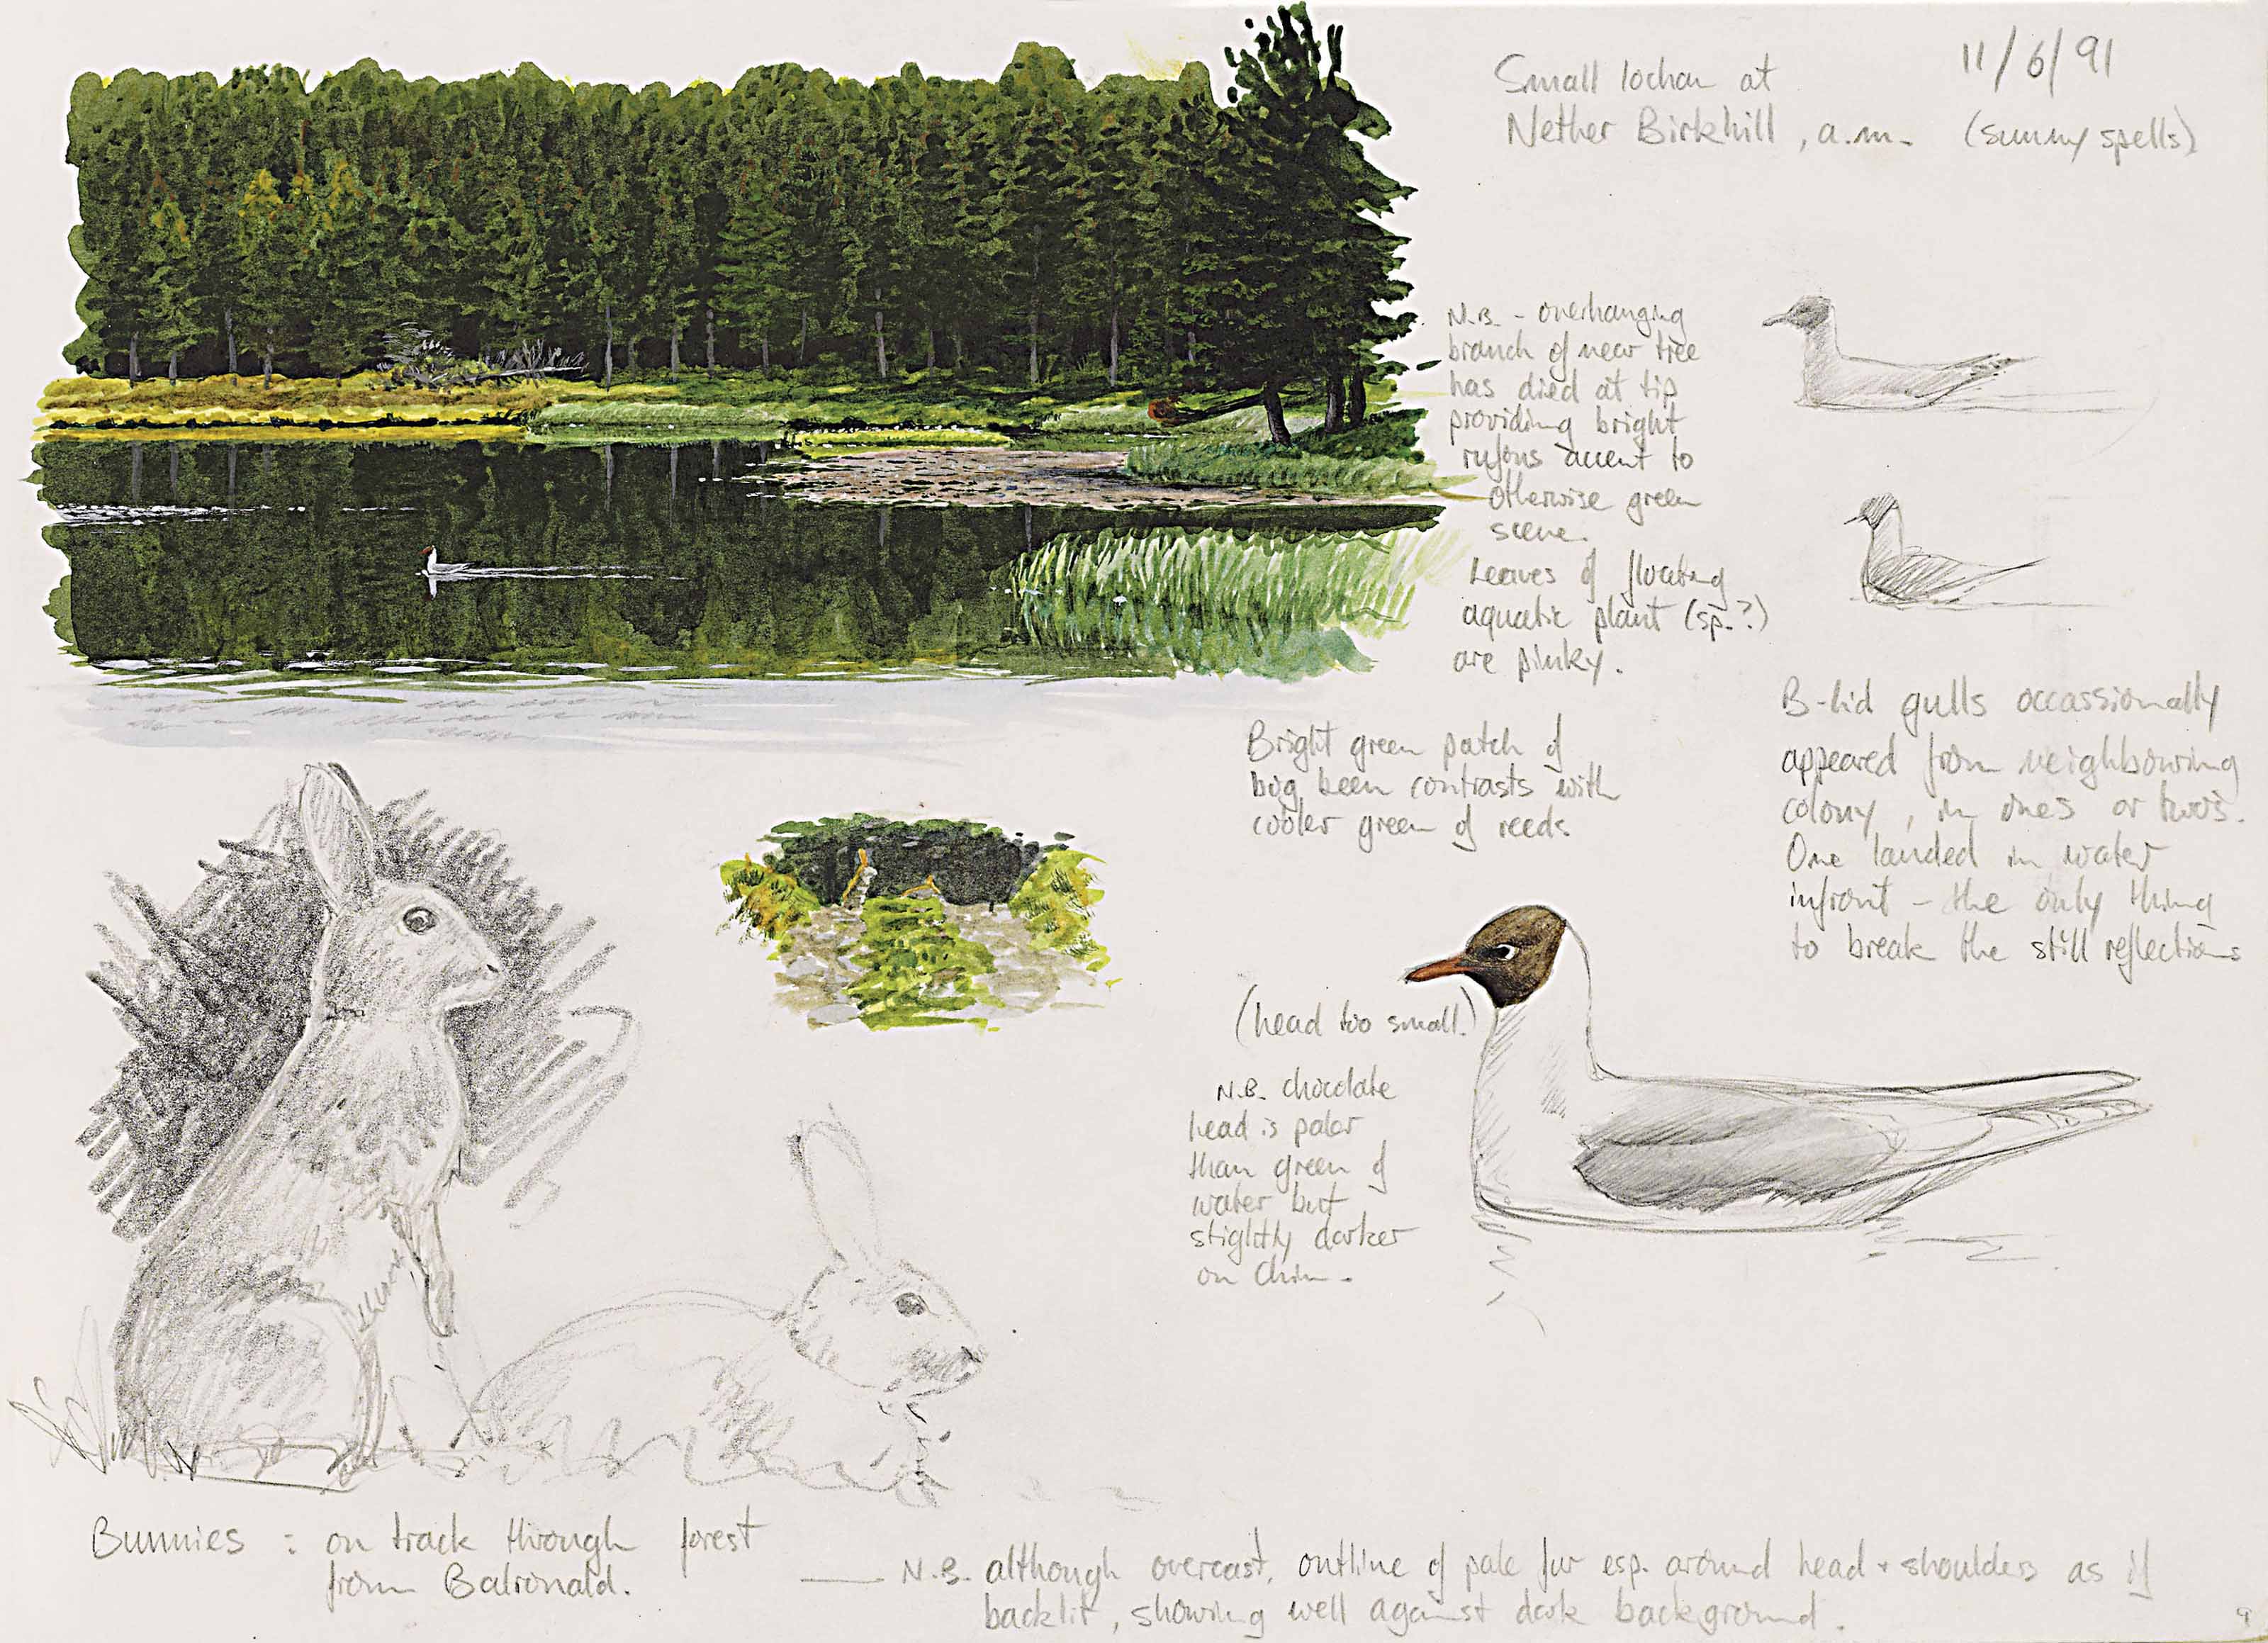 Small lochan at
Nether Birkhill, a.m.
11/6/91
(sunny spells)
N.B. - overhanging
branch of near tree
has died at tip
providing bright
rufous accent to
otherwise green
scene.
Leaves of floating
aquatic plant (sp.?)
are pinky.
Bright green patch of
bog been contrasts with
cooler green of reeds.
B-hd gulls occassionally
appeared from neighbouring
colony, in ones or twos.
One landed in water
infront - the only thing
to break the still reflections
(head too small.)
N.B. chocolate
head is paler
than green of
water but
slightly darker
on chin.
Bunnies : on track through forest
from Balronald.
N.B. although overcast, outline of pale fur esp. around head + shoulders as if
backlit, showing well against dark background.
9